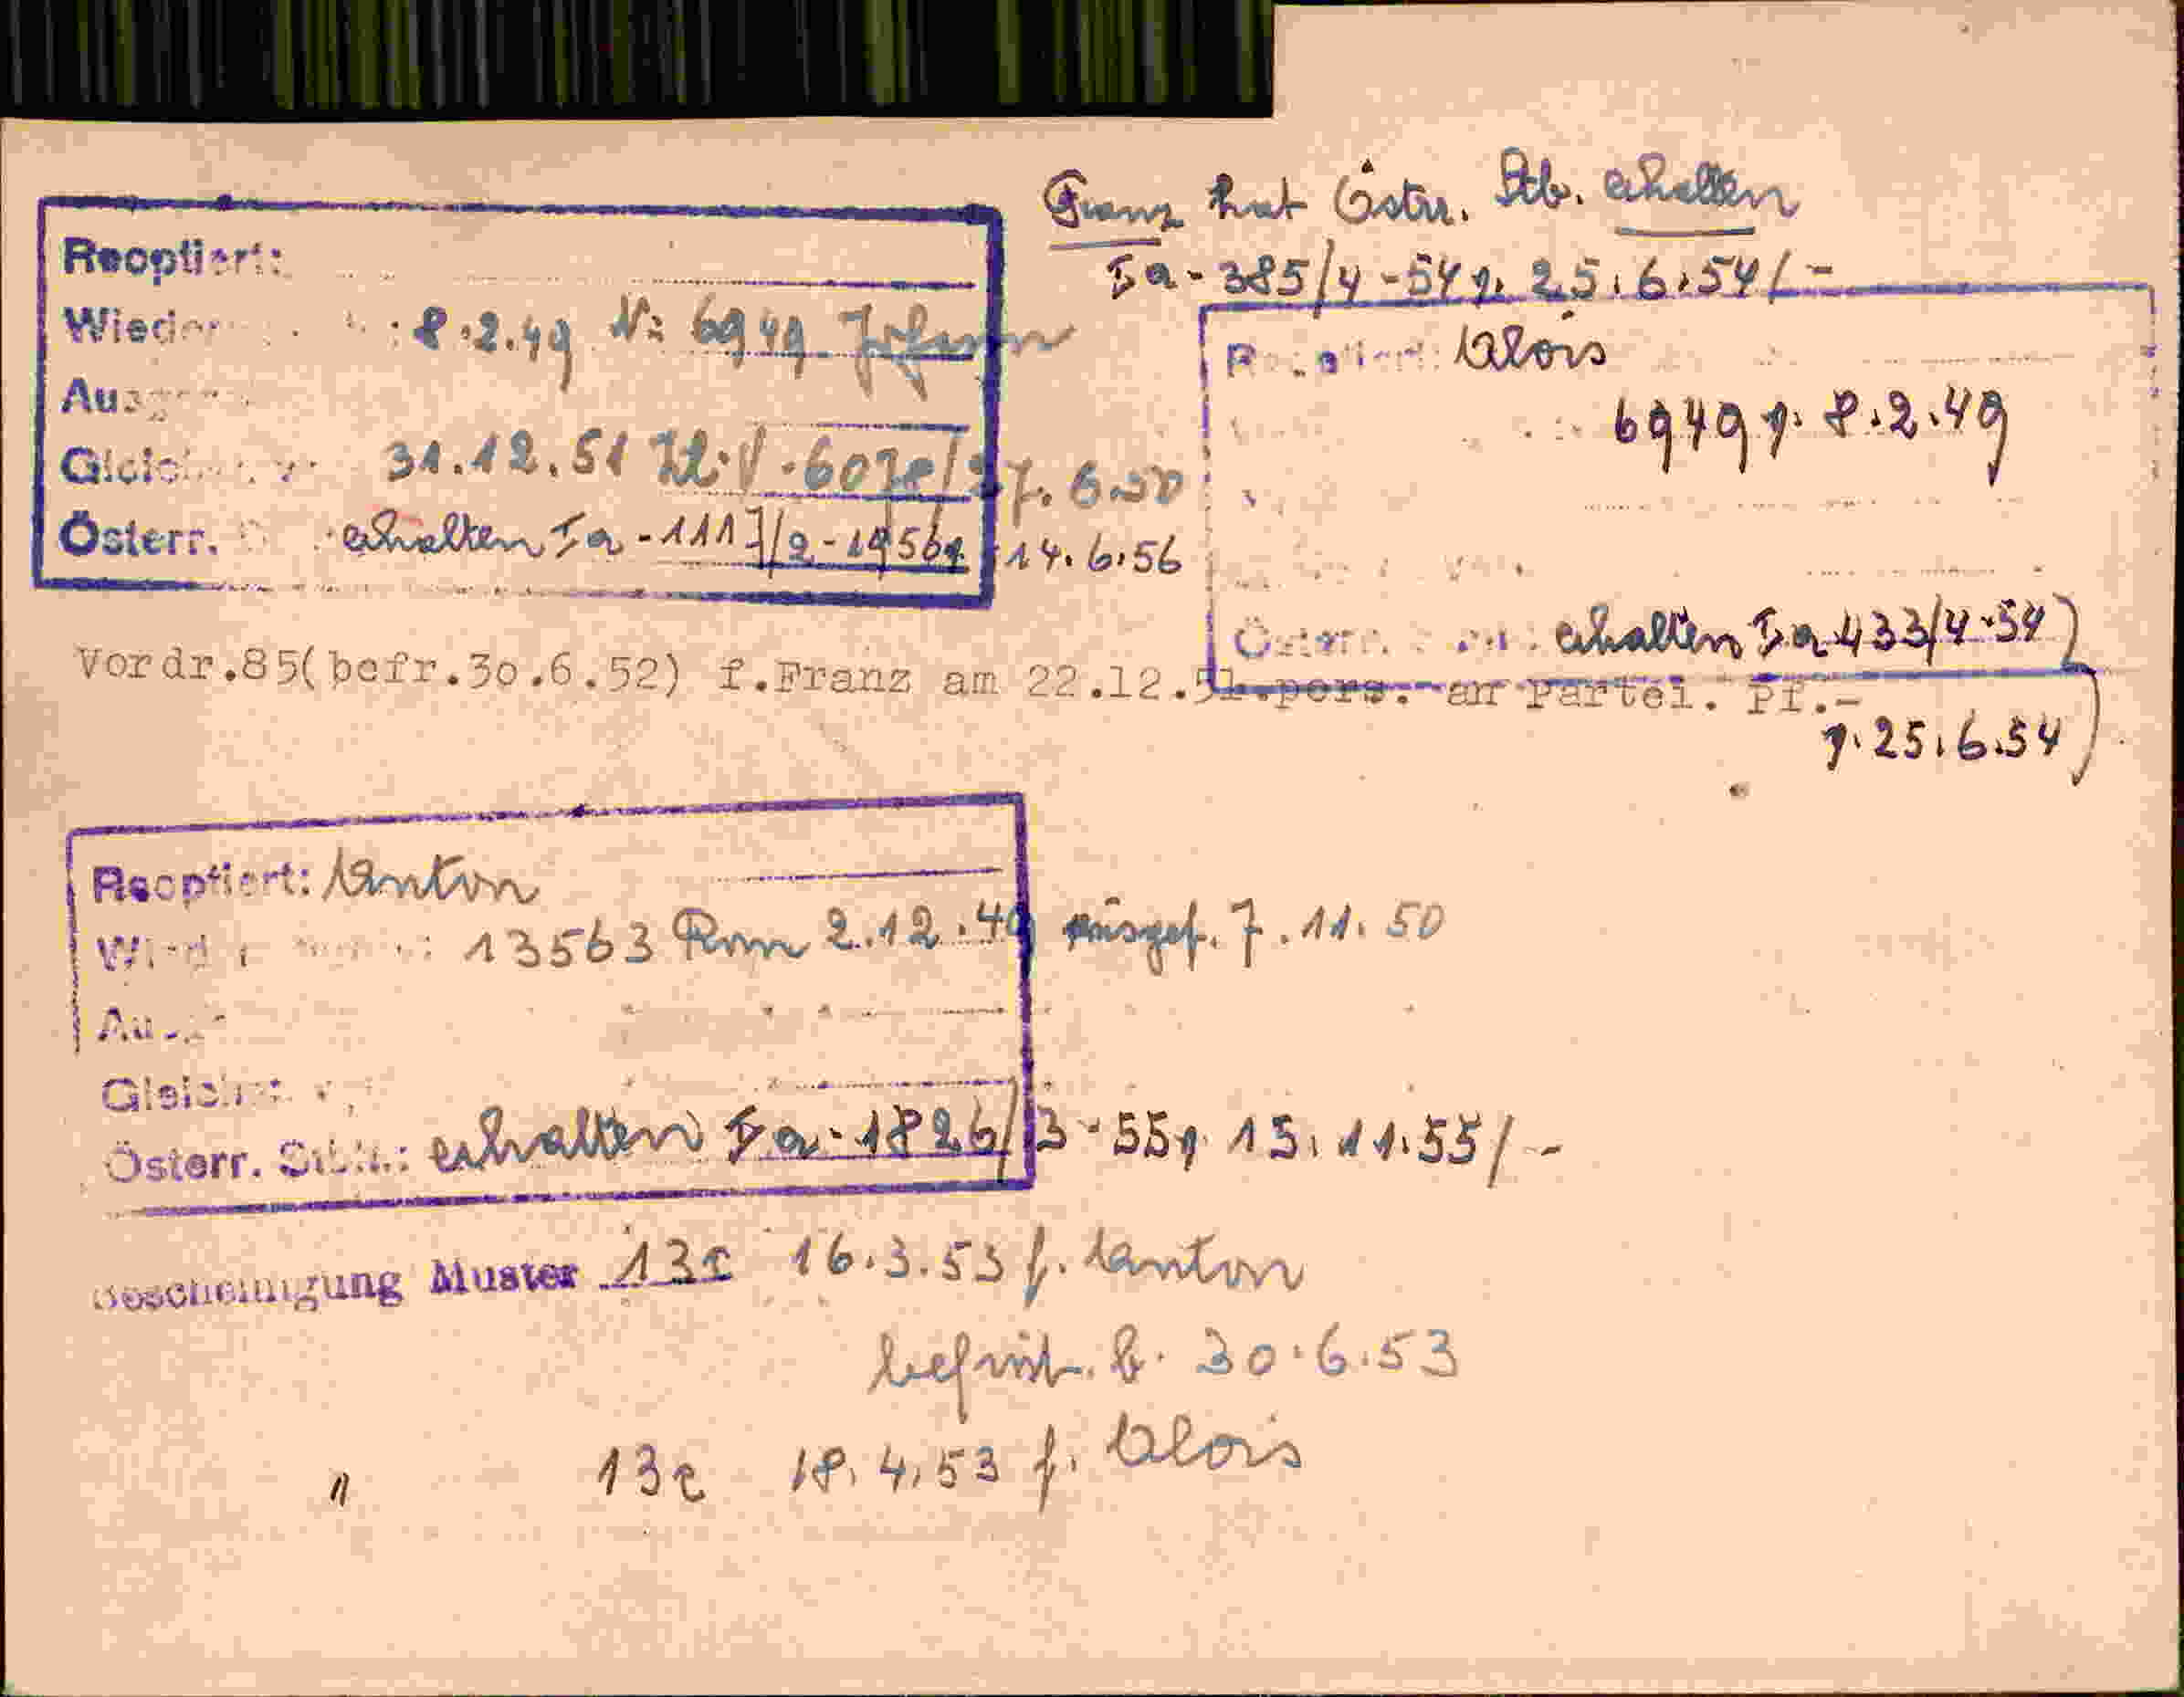 Franz hat Östr. Stb. erhalten
Ia - 385/4 - 54 v. 25.6.54/-
Reoptiert:
8.2.49 N: 6949 Johann
31.12.51 Zl. V. 6078/ 27.6.50
Österr. erhalten Ia - 1117/2 - 1956 v. 14.6.56
Alois
6949 v. 8.2.49
erhalten Ia 433/4-54
v. 25.6.54
Vordr.85(befr.30.6.52) f.Franz am 22.12.51.pers. an Partei. Pf.-
Reoptiert: Anton
13563 Rom 2.12.49 ausgef. 7.11.50
Österr. Stb.: erhalten Ia - 1826/3 - 55 v. 15.11.55/-
Bescheinigung Muster 13c 16.3.53 f. Anton
befrist. b. 30.6.53
" 13c 18.4.53 f. Alois